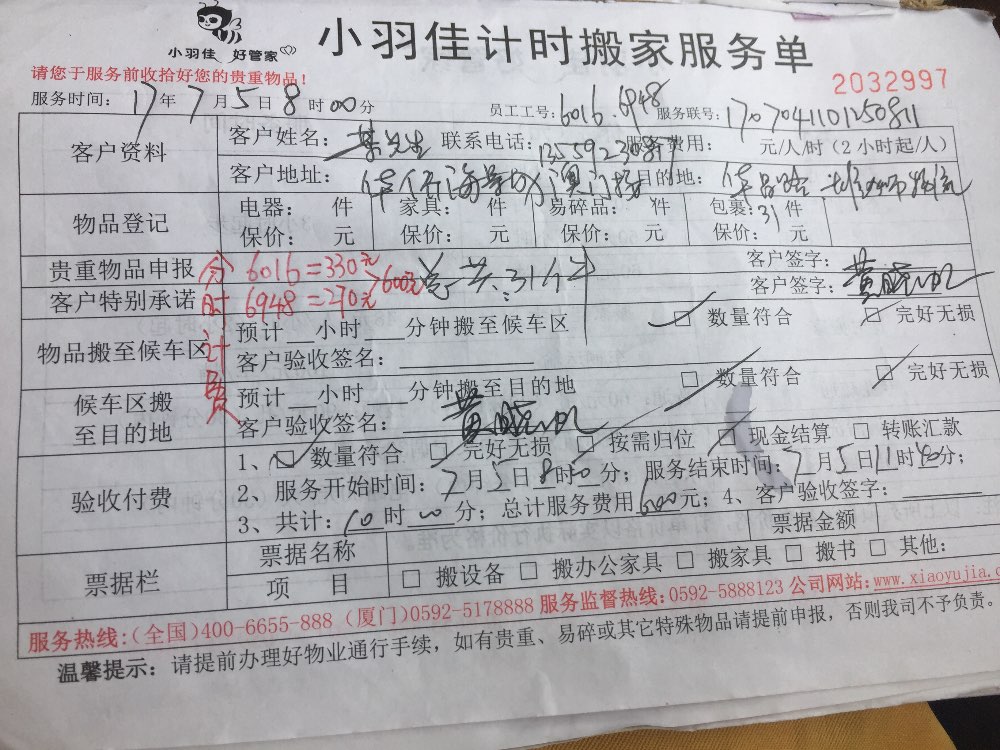 小羽佳 好管家
小羽佳计时搬家服务单
请您于服务前收拾好您的贵重物品！
2032997
服务时间：17年7月5日8时00分 员工工号：6016.6948 服务联号：1707041101250811
客户资料
客户姓名：先生 联系电话： 服务费用： 元/人/时（2小时起/人）
客户地址： 目的地：
物品登记
电器： 件 家具： 件 易碎品： 件 包裹：31件
保价： 元 保价： 元 保价： 元 保价： 元
贵重物品申报 客户签字：
客户特别承诺 客户签字：黄
分时计费
6016=330元
6948=270元
>600元
总共：31件
物品搬至候车区
预计__小时___分钟搬至候车区 □ 数量符合 □ 完好无损
客户验收签名：
候车区搬
至目的地
预计__小时___分钟搬至目的地 □ 数量符合 □ 完好无损
客户验收签名：黄
验收付费
1、□ 数量符合 □ 完好无损 □ 按需归位 □ 现金结算 □ 转账汇款
2、服务开始时间：7月5日8时00分；服务结束时间：7月5日11时40分；
3、共计：10时00分；总计服务费用600元；4、客户验收签字：
票据栏
票据名称 票据金额
项 目 □ 搬设备 □ 搬办公家具 □ 搬家具 □ 搬书 □ 其他：
服务热线：（全国）400-6655-888（厦门）0592-5178888 服务监督热线：0592-5888123 公司网站：www.xiaoyujia.c
温馨提示：请提前办理好物业通行手续，如有贵重、易碎或其它特殊物品请提前申报，否则我司不予负责。